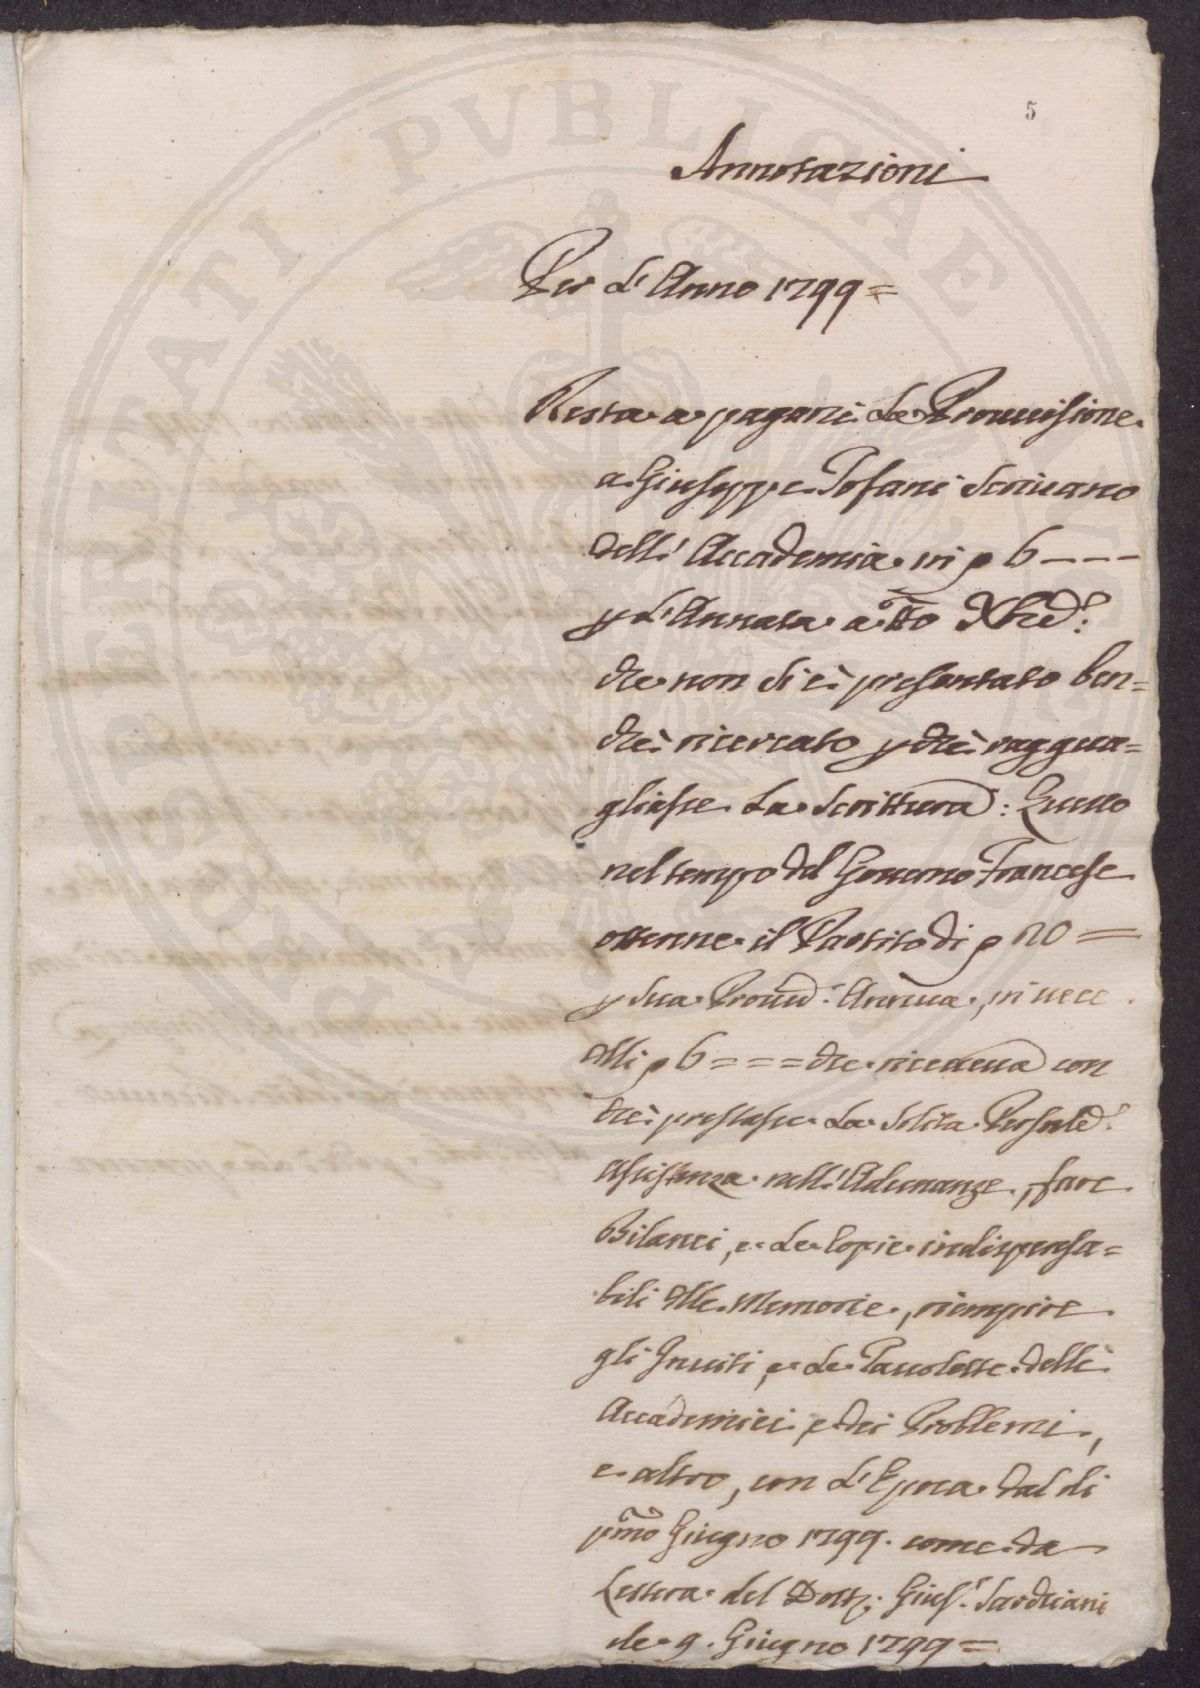 5
Annotazioni
Per L'Anno 1799 =
Resta a pagarsi La Provvisione
a Giuseppe Tofani Scrivano
dell' Accademia in p 6 - - -
p L'Annata a tto Xbre
che non si è presentato ben=
chè ricercato pchè raggua=
gliasse La Scrittura: Questo
nel tempo del Governo Francese
ottenne il Partito di p 20 =
p sua Provv.e Annua, in vece
delli p 6 = = = che riceveva con
che prestasse La Solita Personle
Assistenza nell'Adunanze, fare
Bilanci, e Le Copie indispensa=
bili alle Memorie, riempire
gli Inviti, e Le Tavolette delli
Accademici e dei Problemi,
e altro, con L'Epoca dal dì
pmo Giugno 1799. come da
Lettera del Dott: Gius.e Sardiani
de 9. Giugno 1799 =
PUBLICAE